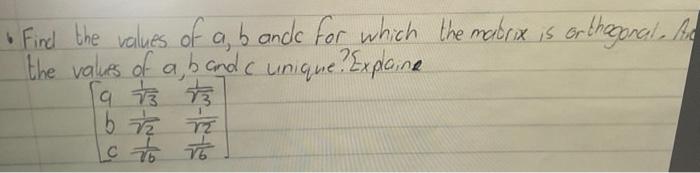 • Find the values of a, b andc for which the matrix is orthogonal. Are
the values of a, b and c unique? Explaine
[a 1/√3 1/√3
b 1/√2 1/√2
c 1/√6 1/√6]